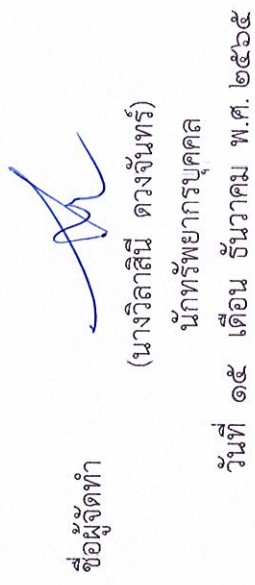 ชื่อผู้จัดทำ
(นางวิลาสินี ดวงจันทร์)
นักทรัพยากรบุคคล
วันที่ ๑๕ เดือน ธันวาคม พ.ศ. ๒๕๖๕